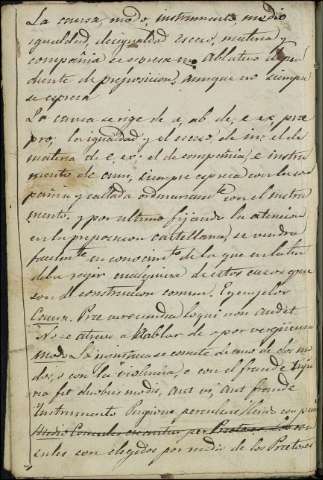 La causa, modo, instrumento, medio
igualdad, desigualdad esceso, materia y
compañia se espresa en Ablativo depen
diente de preposicion, aunque no siempre
se espresa
La causa se rige de a, ab, de, e ex, prae
pro, la igualdad y el esceso, de in; el de
materia de e, ex; el de compañia, e instru
mento de cum, siempre espresa con la com
pañia y callada ordinariamte con el instru
mento. y por ultimo fijando la atencion
en la preposicion castellana, se vendra
facilmte en conocimto de la que en latin
deba regir cualquiera de estos casos que
son de construccion comun. Ejemplos
Causa. Prae verecundia loqui non audet
No se atreve a hablar de o por vergüenza
Modo La injusticia se comete de uno de dos mo
dos, o con la violencia, o con el fraude Injuria
fit duobus modis, aut vi, aut fraude
Instrumento
Medio Consules per
sules son elegidos por medio de los Pretores